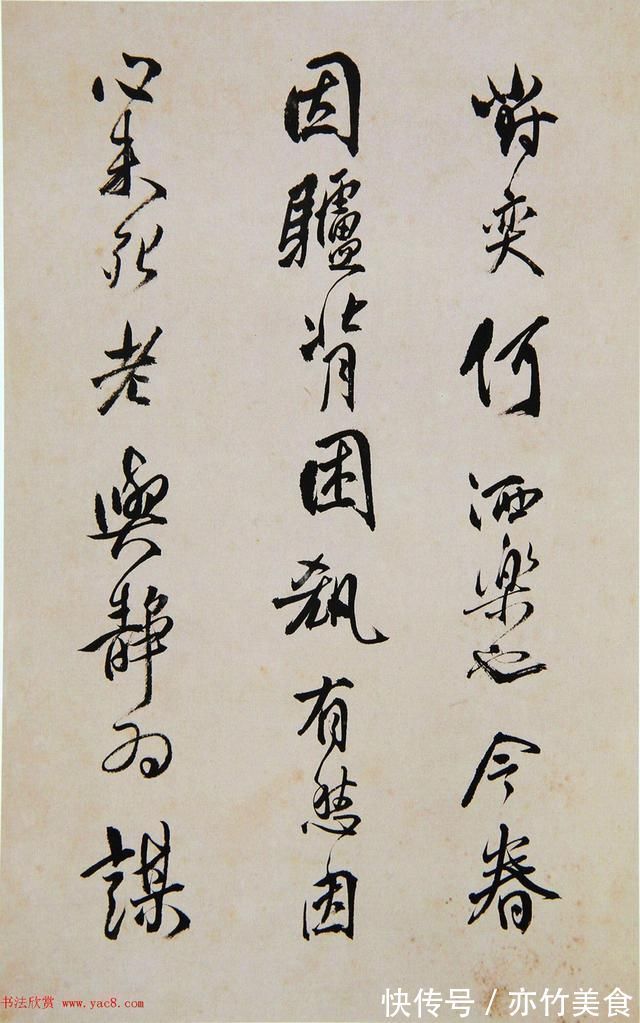 對奕何洒樂也今春
因驢背困有愁因
心未死老與靜為謀
书法欣赏 www.yac8.com
快传号/亦竹美食